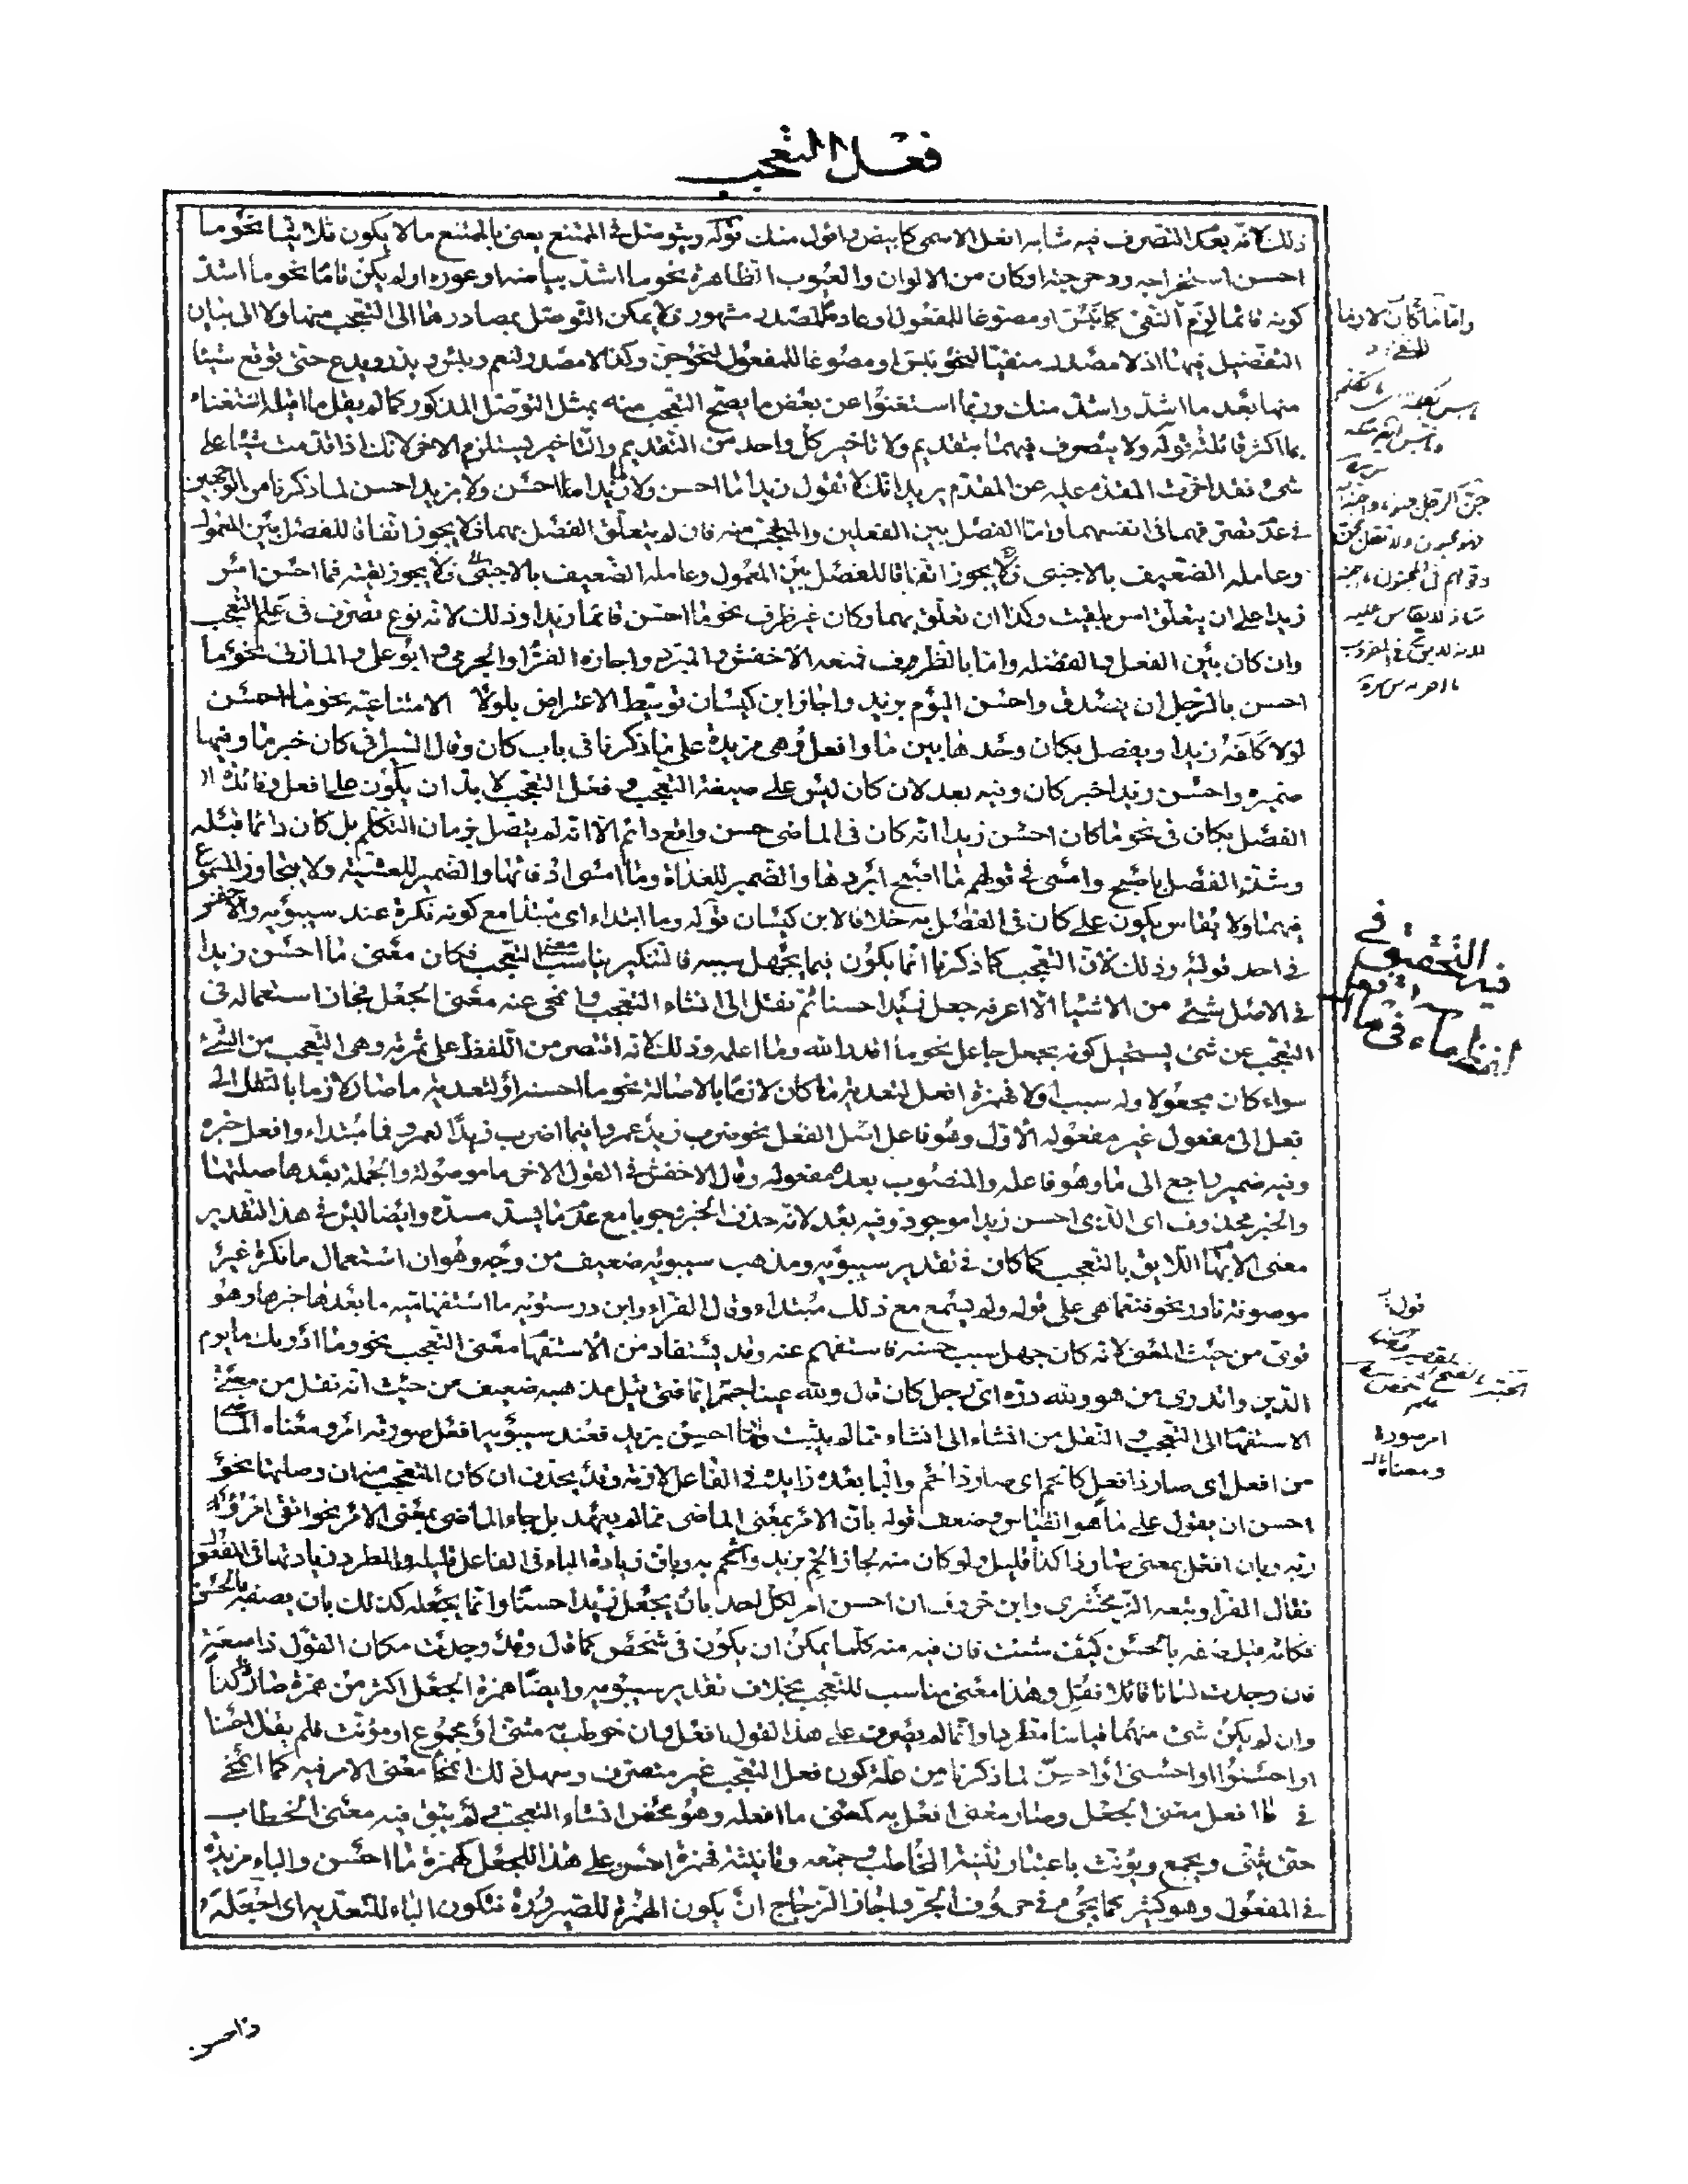 فعل التعجب
ذلك لانه بعد التصرف فيه شابه افعل الاسمي كابيض واقول منك قوله ويتوصل في الممتنع يعني بالممتنع ما لا يكون ثلاثيا نحو ما
احسن استخراجه ودحرجته او كان من الالوان والعيوب الظاهرة نحو ما اشد بياضه او عوره او لم يكن تاما نحو ما اشد
كونه قائما لزم النفي كما نبس او مصوغا للمفعول او عادما لمصدر مشهور فلا يمكن التوصل بمصادرها الى التعجب منها ولا الى بنيان
التفضيل فيها اذ لا مصدر منفيا لنحو نبس او مصوغا للمفعول لنحو جن وكذا لا مصدر لنعم وبئس ويذر ويدع حتى توقع شيئا
منها بعد ما اشد واشد منك وربما استغنوا عن بعض ما يصح التعجب منه بمثل التوصل المذكور كما لم يقل ما اقيله استغناء
بما اكثر قائلته قوله ولا يتصرف فيهما بتقديم ولا تاخير كل واحد من التقديم والتاخير يستلزم الاخر لانك اذا قدمت شيئا على
شئ فقد اخرت المقدم عليه عن المقدم يريد انك لا تقول زيدا ما احسن ولا ما زيدا احسن ولا بزيد احسن لما ذكرنا من الوجهين
في عدم تصرفهما في انفسهما واما الفصل بين الفعلين والمتعجب منه فان لم يتعلق الفصل بهما فلا يجوز اتفاقا للفصل بين المعمول
وعامله الضعيف بالاجنبي فلا يجوز لقيته فما احسن امس
زيدا على ان يتعلق امس بلقيت وكذا ان تعلق بهما وكان غير ظرف نحو ما احسن قائما زيدا وذلك لانه نوع تصرف في علم التعجب
وان كان بين الفعل والفضلة واما بالظرف فمنعه الاخفش والمبرد واجازه الفراء والجرمي وابو علي والمازني نحو ما
احسن بالرجل ان يصدق واحسن اليوم بزيد واجاز ابن كيسان توسيط الاعتراض بلولا الامتناعية نحو ما احسن
لولا كلفه زيدا ويفصل بكان وحدها بين ما وافعل وهي مزيدة على ما ذكرنا في باب كان وقال السيرافي كان خبر ما وفيها
ضميره واحسن زيدا خبر كان وفيه بعد لان كان ليس على صيغة التعجب وفعل التعجب لا بد ان يكون على افعل وفائدة
الفصل بكان في نحو ما كان احسن زيدا انه كان في الماضي حسن واقع دائم الا انه لم يتصل بزمان التكلم بل كان دائما قبله
وشذ الفصل باصبح وامسى في قولهم ما اصبح ابردها والضمير للغداة وما امسى ادفاها والضمير للعشية ولا يتجاوز المسموع
فيهما ولا يقاس يكون على كان في الفصل به خلافا لابن كيسان قوله وما ابتداء اي مبتدا مع كونه نكرة عند سيبويه والاخفش
في احد قوليه وذلك لان التعجب كما ذكرنا انما يكون فيما يجهل سببه فالتنكير يناسب معنى التعجب فكان معنى ما احسن زيدا
في الاصل شئ من الاشياء لا اعرفه جعل زيدا حسنا ثم نقل الى انشاء التعجب وانمحى عنه معنى الجعل فجاز استعماله في
التعجب عن شئ يستحيل كونه بجعل جاعل نحو ما اقدر الله وما اعلمه وذلك لانه اقتصر من اللفظ على ثمرته وهي التعجب من الشئ
سواء كان مجعولا وله سبب اولا فهمزة افعل لتعدية ما كان لازما بالاصالة نحو ما احسن او لتعدية ما صار لازما بالنقل الى
فعل الى مفعول غير مفعوله الاول وهو فاعل اصل الفعل نحو ضرب زيد عمرا وما اضرب زيدا لعمرو فما مبتداء وافعل خبره
وفيه ضمير راجع الى ما وهو فاعله والمنصوب بعده مفعوله وقال الاخفش في القول الاخر ما موصولة والجملة بعدها صلتها
والخبر محذوف اي الذي احسن زيدا موجود وفيه بعد لانه حذف الخبر وجوبا مع عدم ما يسد مسده وايضا ليس في هذا التقدير
معنى الابهام اللايق بالتعجب كما كان في تقدير سيبويه ومذهب سيبويه ضعيف من وجه وهو ان استعمال ما نكرة غير
موصوفة نادر نحو فنعما هي على قوله ولم يسمع مع ذلك مبتداء وقال الفراء وابن درستويه ما استفهامية ما بعدها خبرها وهو
قوي من حيث المعنى لانه كان جهل سبب حسنه فاستفهم عنه وقد يستفاد من الاستفهام معنى التعجب نحو وما ادريك ما يوم
الدين واتدري من هو ولله دره اي رجل كان قال ولله عينا حبتر ايما فتى قيل مذهبه ضعيف من حيث انه نقل من معنى
الاستفهام الى التعجب والنقل من انشاء الى انشاء مما لم يثبت واما احسن بزيد فعند سيبويه افعل صورته امر ومعناه الماضي
من افعل اي صار ذا فعل كالحم اي صار ذا لحم والبا بعده زايدة في الفاعل لازمة وقد يحذف ان كان المتعجب منه ان وصلتها نحو
احسن ان يقول على ما هو القياس وضعف قوله بان الامر بمعنى الماضي مما لم يعهد بل جاء الماضي بمعنى الامر نحو اتقى امرؤ
ربه وبان افعل بمعنى صار ذا كذا قليل ولو كان منه لجاز الحم بزيد واشحم به وبان زيادة الباء في الفاعل قليلة والمطرد زيادتها في المفعول
فقال الفراء وتبعه الزمخشري وابن خروف ان احسن امر لكل احد بان يجعل زيدا حسنا وانما يجعله كذلك بان يصفه بالحسن
فكانه قيل صفه بالحسن كيف شئت فان فيه منه كلما يمكن ان يكون في شخص كما قال وقد وجدت مكان القول ذا سعة
فان وجدت لسانا قائلا فقل وهذا معنى مناسب للتعجب بخلاف تقدير سيبويه وايضا همزة الجعل اكثر من همزة صار ذا كذا
وان لم يكن شئ منهما قياسا مطردا وانما لم يصرف على هذا القول افعل وان خوطب به مثنى او مجموع او مؤنث فلم يقل احسنا
او احسنوا او احسني او احسن لما ذكرنا من علة كون فعل التعجب غير متصرف وسهل ذلك انمحاء معنى الامر فيه كما انمحى
في ما افعل معنى الجعل وصار معنى افعل به كمعنى ما افعله وهو محض انشاء التعجب ولم يبق فيه معنى الخطاب
حتى يثنى ويجمع ويؤنث باعتبار تثنية المخاطب وجمعه وتانيثه فهمزة احسن على هذا للجعل كهمزة ما احسن والباء مزيدة
في المفعول وهو كثير كما يجئ في حروف الجر واجاز الزجاج ان يكون الهمزة للصيرورة فتكون الباء للتعدية اي اجعله
التحقيق في
امر صورة
ومعناه